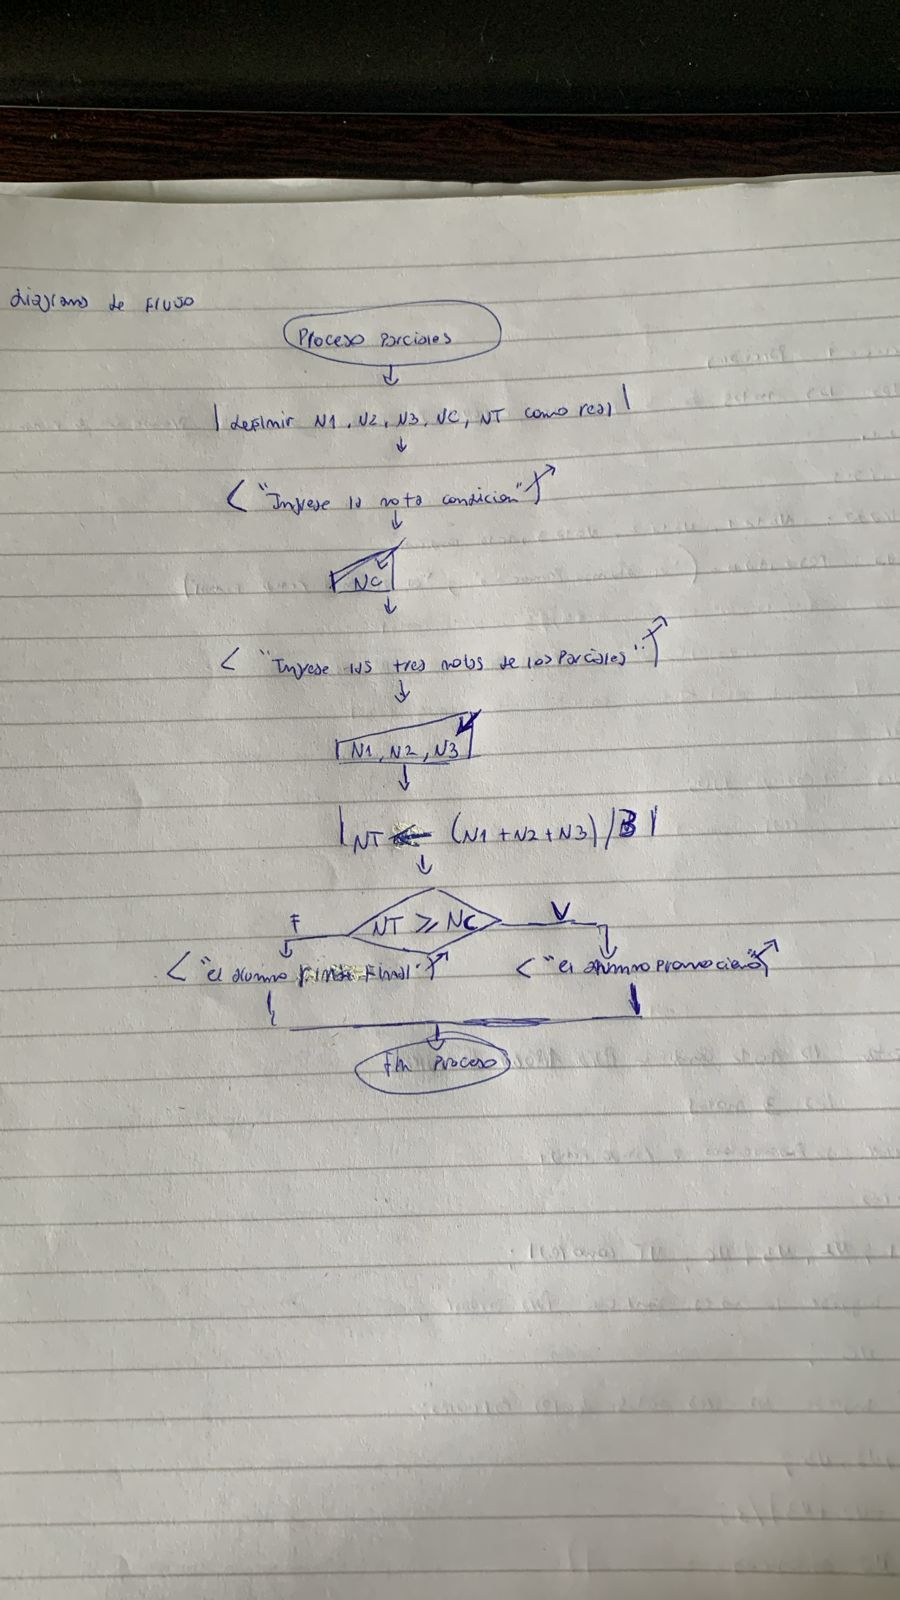 diagrama de Flujo
Proceso Parciales
definir N1, N2, N3, NC, NT como real
"Ingrese la nota condicion"
NC
"Ingrese las tres notas de los Parciales"
N1, N2, N3
NT ← (N1 + N2 + N3) / 3
F NT ≥ NC V
"el alumno rinde Final" "el alumno promociona"
Fin proceso